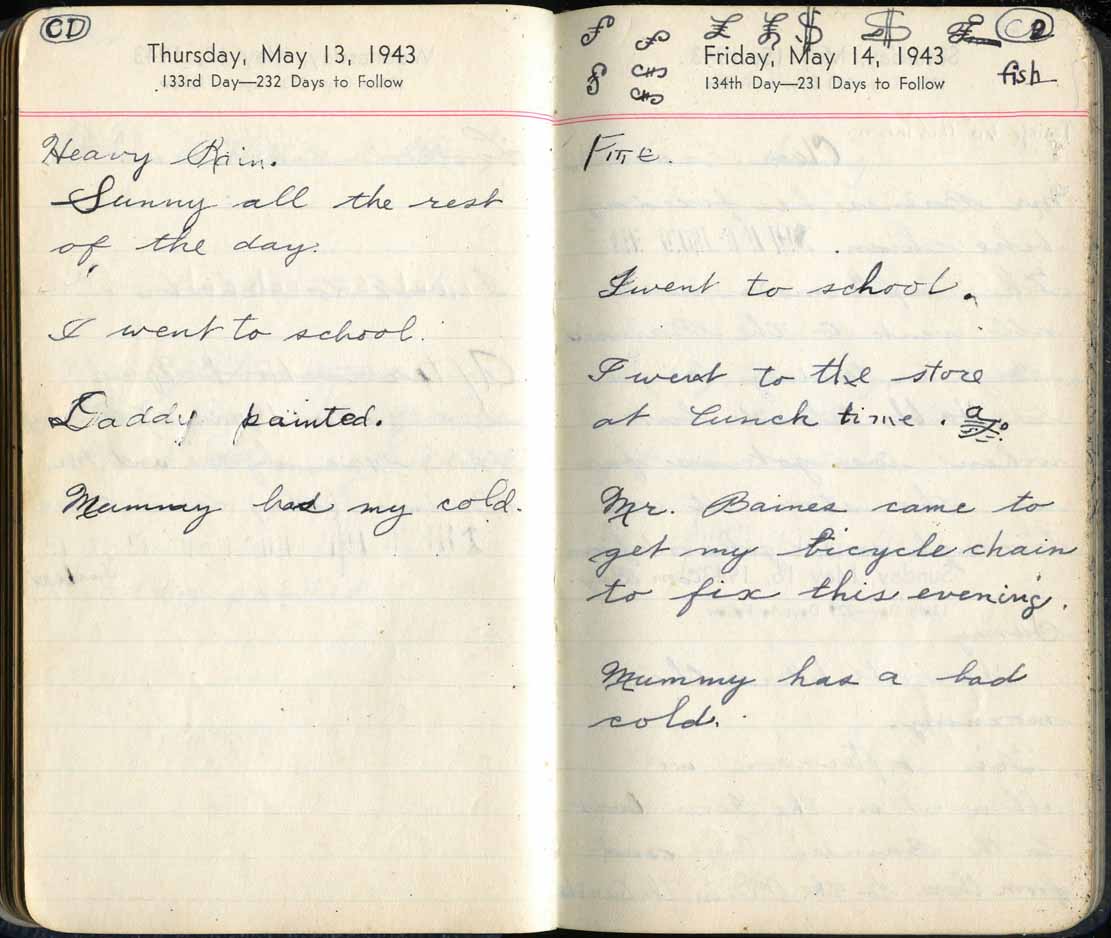 CD
Thursday, May 13, 1943
133rd Day—232 Days to Follow
Heavy Rain.
Sunny all the rest
of the day.
I went to school.
Daddy painted.
Mummy had my cold.
£ £ $ $ £
Friday, May 14, 1943
134th Day—231 Days to Follow
fish
Fine.
I went to school.
I went to the store
at lunch time.
Mr. Baines came to
get my bicycle chain
to fix this evening.
Mummy has a bad
cold.